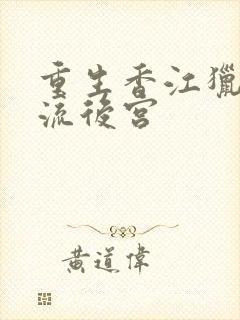 重生香江獵
流後宮
黃道偉